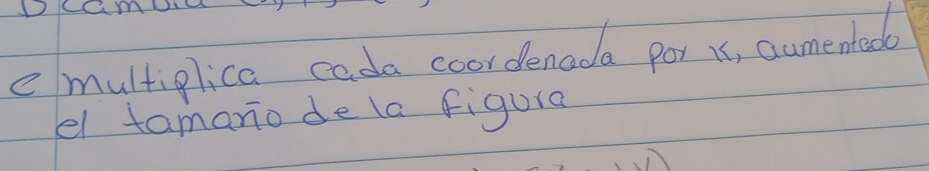 c multiplica cada coordenada por K, aumentado
el tamaño de la figura